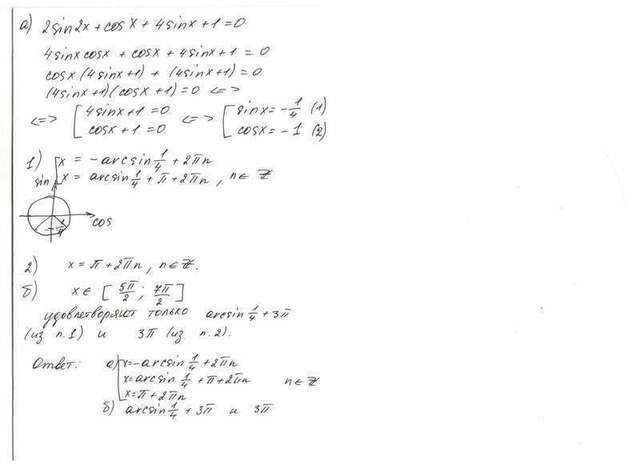 а) 2sin2x + cosx + 4sinx + 1 = 0
4sinx cosx + cosx + 4sinx + 1 = 0
cosx (4sinx+1) + (4sinx+1) = 0
(4sinx+1)(cosx+1) = 0 <=>
<=> [ 4sinx+1 = 0 <=> [ sinx = -1/4 (1)
cosx+1 = 0 cosx = -1 (2)
1) [ x = -arcsin 1/4 + 2πn
x = arcsin 1/4 + π + 2πn, n∈Z
sin
cos
-1/4
2) x = π + 2πn, n∈Z.
б) x∈ [5π/2; 7π/2]
удовлетворяют только arcsin 1/4 + 3π
(из п.1) и 3π (из п.2).
Ответ: а) [ x = -arcsin 1/4 + 2πn
x = arcsin 1/4 + π + 2πn n∈Z
x = π + 2πn
б) arcsin 1/4 + 3π и 3π